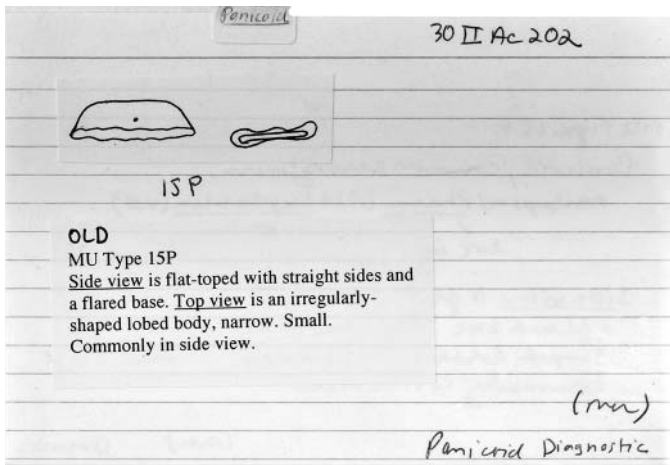 Panicoid
30 II Ac 202
15P
OLD
MU Type 15P
Side view is flat-toped with straight sides and
a flared base. Top view is an irregularly-
shaped lobed body, narrow. Small.
Commonly in side view.
Panicoid Diagnostic